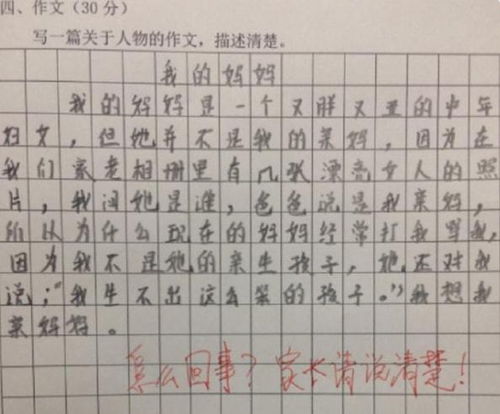 四、作文(30分)
写一篇关于人物的作文，描述清楚。
我的妈妈
我的妈妈是一个又胖又丑的中年
妇女，但她并不是我的亲妈，因为在
我们家老相册里有几张漂亮女人的照
片，我问她是谁，爸爸说是我亲妈，
所以为什么现在的妈妈经常打我骂我，
因为我不是她的亲生孩子，她还对我
说；“我生不出这么笨的孩子。”我想我
亲妈妈。
怎么回事？家长请说清楚！